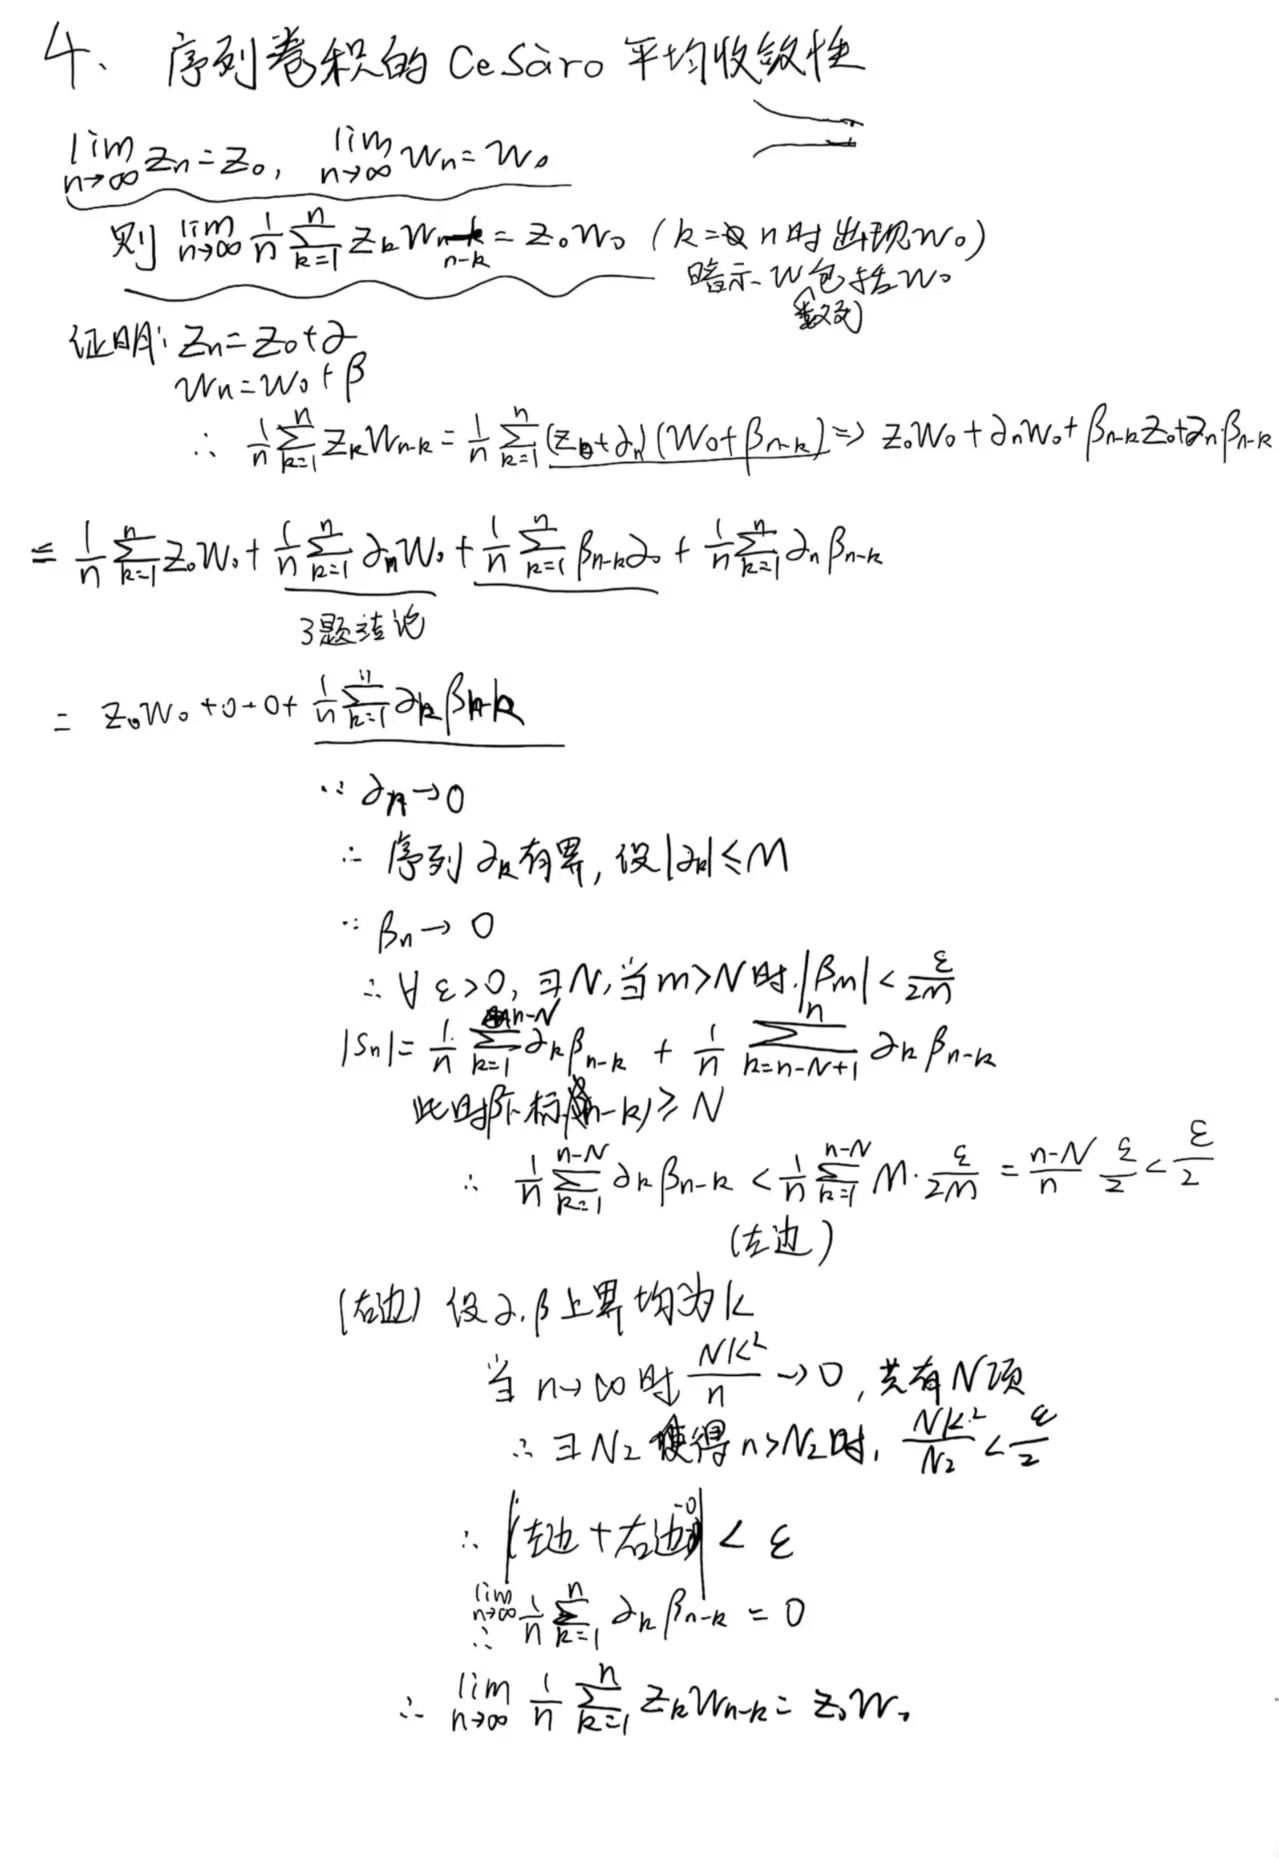 4、序列卷积的 Cesàro 平均收敛性
lim n→∞ Zn = Z₀, lim n→∞ Wn = W₀
则 lim n→∞ 1/n ∑_{k=1}^{n} Z_k W_{n-k} = Z₀W₀ (k= n时出现W₀)
暗示W包括W₀
数列
证明: Zn = Z₀+∂
Wn = W₀+β
∴ 1/n ∑_{k=1}^{n} Z_k W_{n-k} = 1/n ∑_{k=1}^{n} (Z₀+∂n)(W₀+β_{n-k}) ⇒ Z₀W₀+∂nW₀+β_{n-k}Z₀+∂n·β_{n-k}
= 1/n ∑_{k=1}^{n} Z₀W₀ + 1/n ∑_{k=1}^{n} ∂nW₀ + 1/n ∑_{k=1}^{n} β_{n-k}∂₀ + 1/n ∑_{k=1}^{n} ∂n β_{n-k}
3题结论
= Z₀W₀ +0+0+ 1/n ∑_{k=1}^{n} ∂k β_{n-k}
∵ ∂n→0
∴ 序列∂k有界, 设|∂k|≤M
∵ βn→0
∴ ∀ε>0, ∃N, 当m>N时, |βm| < ε/2M
|Sn| = 1/n ∑_{k=1}^{n-N} ∂k β_{n-k} + 1/n ∑_{k=n-N+1}^{n} ∂k β_{n-k}
此时β下标(n-k)≥N
∴ 1/n ∑_{k=1}^{n-N} ∂k β_{n-k} < 1/n ∑_{k=1}^{n-N} M·ε/2M = (n-N)/n ε/2 < ε/2
(左边)
(右边) 设∂,β上界均为K
当n→∞时 NK²/n →0, 共有N项
∴ ∃N₂ 使得n>N₂时, NK²/N₂ < ε/2
∴ |(左边+右边)-0| < ε
∴ lim n→∞ 1/n ∑_{k=1}^{n} ∂k β_{n-k} = 0
∴ lim n→∞ 1/n ∑_{k=1}^{n} Z_k W_{n-k} = Z₀W₀